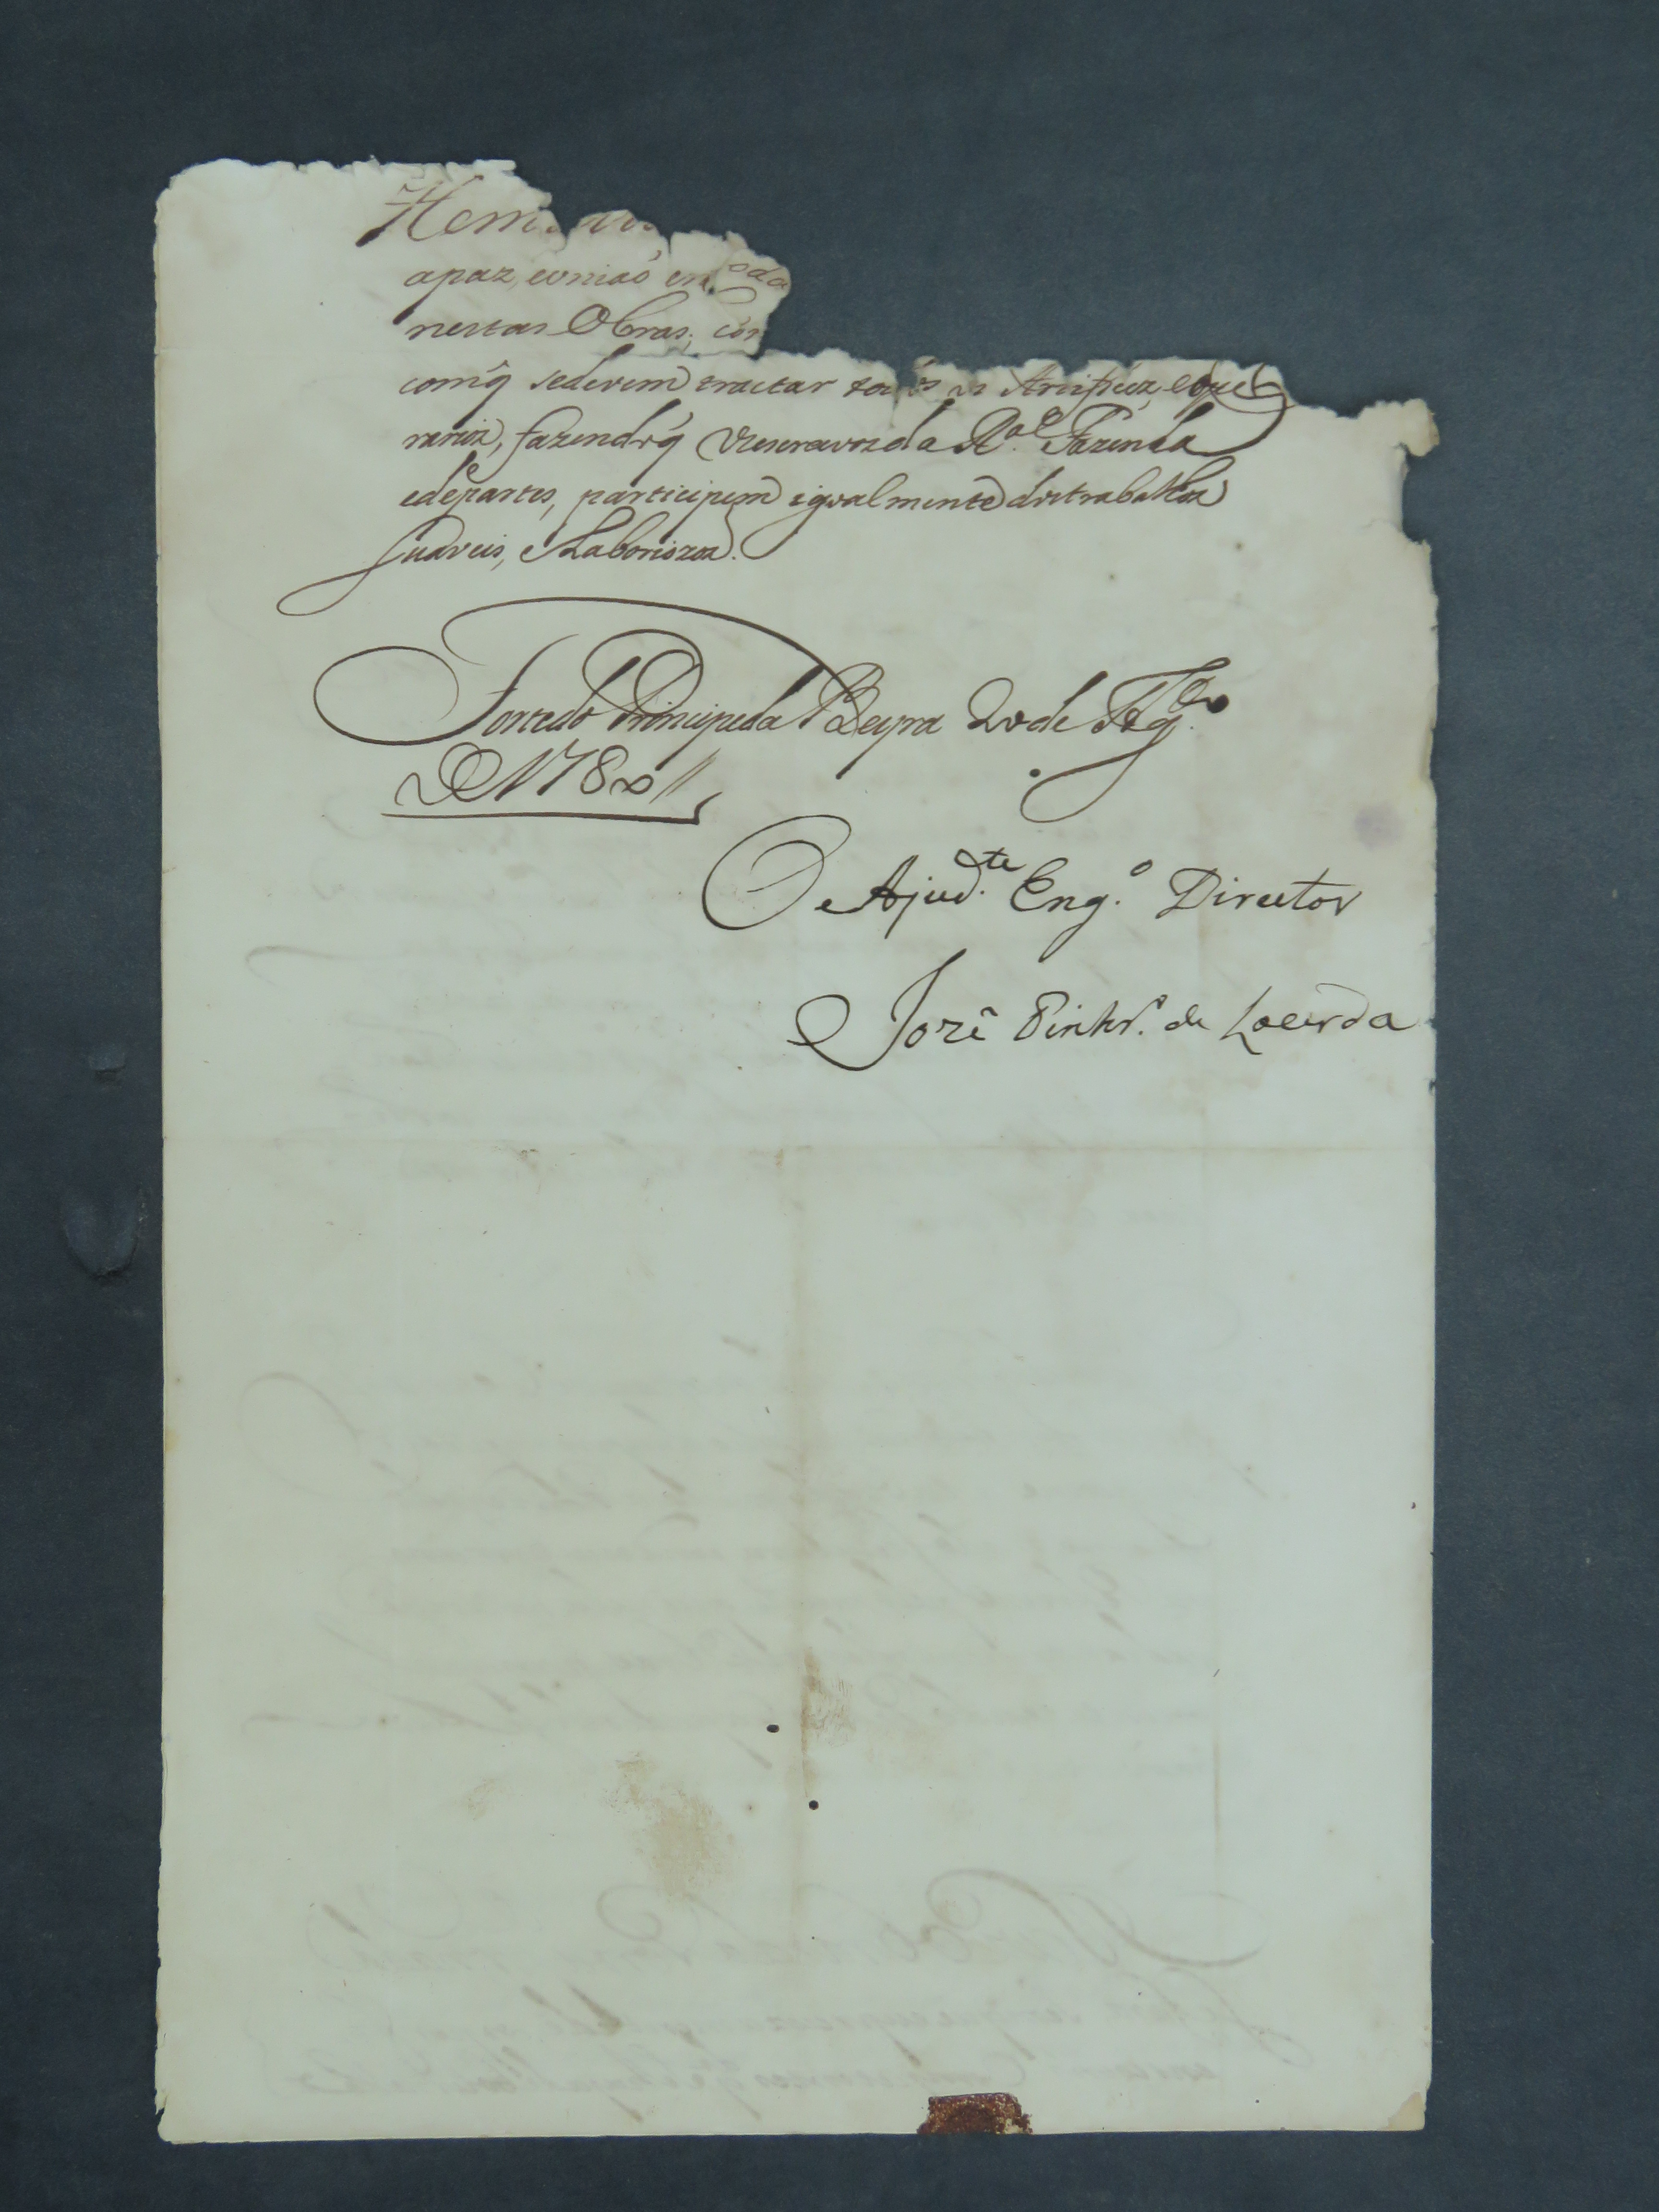 Hem
apaz, euniaõ em
nestas Obras; con
comq̃ sedevem tractar todos os Artifices, eope
rarios, fazendo q̃ os escravos da R.al Fazenda
edepartes, participem igualmente dos trabalhos
suaveis, e laboriozos.
Forte do Principe da Beyra 20 de Ag.to
De 1780//
O Ajud.te Eng.o Director
Jozê Pinhr.o de Lacerda